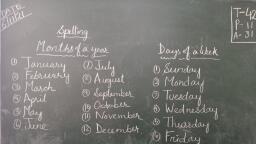 DATE
5/1/21
Spelling
T-42
P-11
A-31
Months of a year
① January
② February
③ March
④ April
⑤ May
⑥ June
⑦ July
⑧ August
⑨ September
⑩ October
⑪ November
⑫ December
Days of a week
① Sunday
② Monday
③ Tuesday
④ Wednesday
⑤ Thursday
⑥ Friday